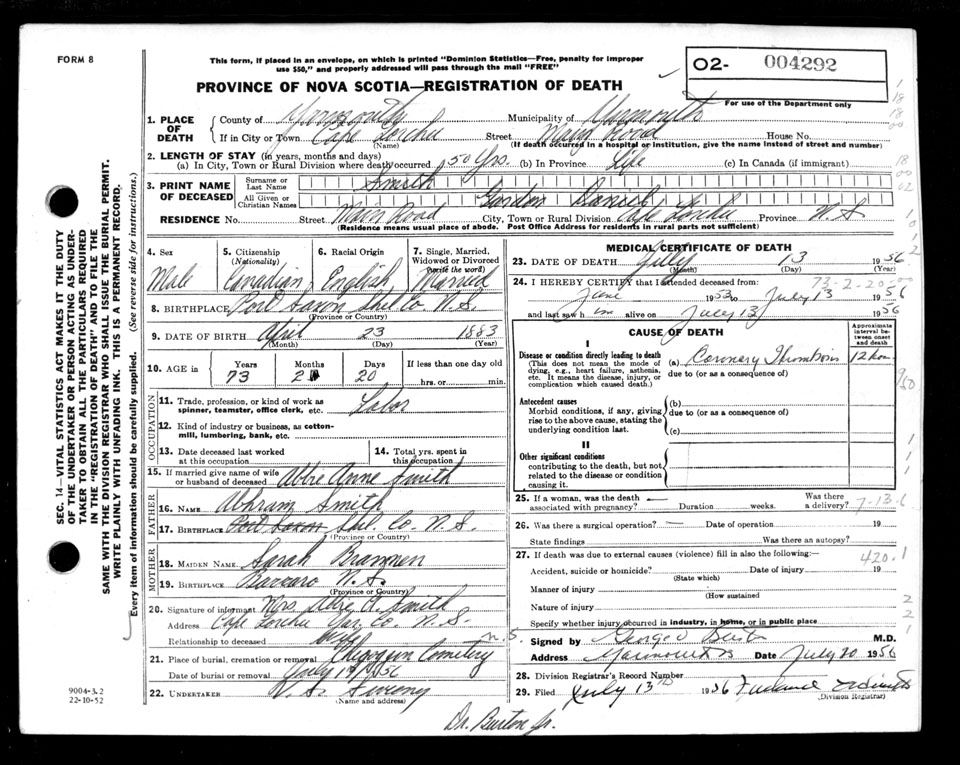 FORM 8
This form, if placed in an envelope, on which is printed "Dominion Statistics—Free, penalty for improper
use $50," and properly addressed will pass through the mail "FREE"
PROVINCE OF NOVA SCOTIA—REGISTRATION OF DEATH
O2- 004292
For use of the Department only
1. PLACE OF DEATH
County of Yarmouth Municipality of Yarmouth
If in City or Town Cape Forchu Street Main Road House No.
(Name) (If death occurred in a hospital or institution, give the name instead of street and number)
2. LENGTH OF STAY (in years, months and days)
(a) In City, Town or Rural Division where death occurred 50 Yrs. (b) In Province Life (c) In Canada (if immigrant)
3. PRINT NAME OF DECEASED
Surname or Last Name Smith
All Given or Christian Names Gordon Daniel
RESIDENCE No. Street Main Road City, Town or Rural Division Cape Forchu Province N.S
(Residence means usual place of abode. Post Office Address for residents in rural parts not sufficient)
4. Sex Male
5. Citizenship (Nationality) Canadian
6. Racial Origin English
7. Single, Married, Widowed or Divorced (write the word) Married
8. BIRTHPLACE Port Saxon Shel. Co. N.S.
(Province or Country)
9. DATE OF BIRTH April 23 1883
(Month) (Day) (Year)
10. AGE in Years 73 Months 2 Days 20 If less than one day old
hrs. or min.
OCCUPATION
11. Trade, profession, or kind of work as
spinner, teamster, office clerk, etc. Labor
12. Kind of industry or business, as cotton-
mill, lumbering, bank, etc.
13. Date deceased last worked
at this occupation
14. Total yrs. spent in
this occupation
15. If married give name of wife
or husband of deceased Abbie Anne Smith
FATHER
16. NAME Abhram Smith
17. BIRTHPLACE Port Saxon Shel. Co. N.S.
(Province or Country)
MOTHER
18. MAIDEN NAME Sarah Brannen
19. BIRTHPLACE N.S.
(Province or Country)
20. Signature of informant Mrs. Abbie A. Smith
Address Cape Forchu Yar. Co. N.S.
Relationship to deceased wife
21. Place of burial, cremation or removal Chegoggin Cemetery
Date of burial or removal July 1956
22. UNDERTAKER V. S. Sweeny
(Name and address)
MEDICAL CERTIFICATE OF DEATH
23. DATE OF DEATH July 13 1956
(Month) (Day) (Year)
73-2-20
24. I HEREBY CERTIFY that I attended deceased from:
June 1953 to July 13 1956
and last saw him alive on July 13 1956
CAUSE OF DEATH
Approximate interval between onset and death
I
Disease or condition directly leading to death
(This does not mean the mode of dying, e.g., heart failure, asthenia, etc. It means the disease, injury, or complication which caused death.)
(a) Coronary Thrombosis 12 hours
due to (or as a consequence of)
Antecedent causes
Morbid conditions, if any, giving rise to the above cause, stating the underlying condition last.
(b)
due to (or as a consequence of)
(c)
II
Other significant conditions
contributing to the death, but not related to the disease or condition causing it.
25. If a woman, was the death
associated with pregnancy? Duration weeks. Was there a delivery?
26. Was there a surgical operation? Date of operation 19
State findings Was there an autopsy?
27. If death was due to external causes (violence) fill in also the following: 420.1
Accident, suicide or homicide? Date of injury 19
(State which)
Manner of injury
(How sustained
Nature of injury
Specify whether injury occurred in industry, in home, or in public place
Signed by George V Burton M.D.
Address Yarmouth NS Date July 20 1956
28. Division Registrar's Record Number
29. Filed July 13th 1956
(Division Registrar)
Dr. Burton Jr.
SEC. 14—VITAL STATISTICS ACT MAKES IT THE DUTY
OF THE UNDERTAKER OR PERSON ACTING AS UNDER-
TAKER TO OBTAIN ALL THE PARTICULARS REQUIRED
IN THE "REGISTRATION OF DEATH" AND TO FILE THE
SAME WITH THE DIVISION REGISTRAR WHO SHALL ISSUE THE BURIAL PERMIT.
WRITE PLAINLY WITH UNFADING INK. THIS IS A PERMANENT RECORD.
Every item of information should be carefully supplied. (See reverse side for instructions.)
9004-3.2
22-10-52